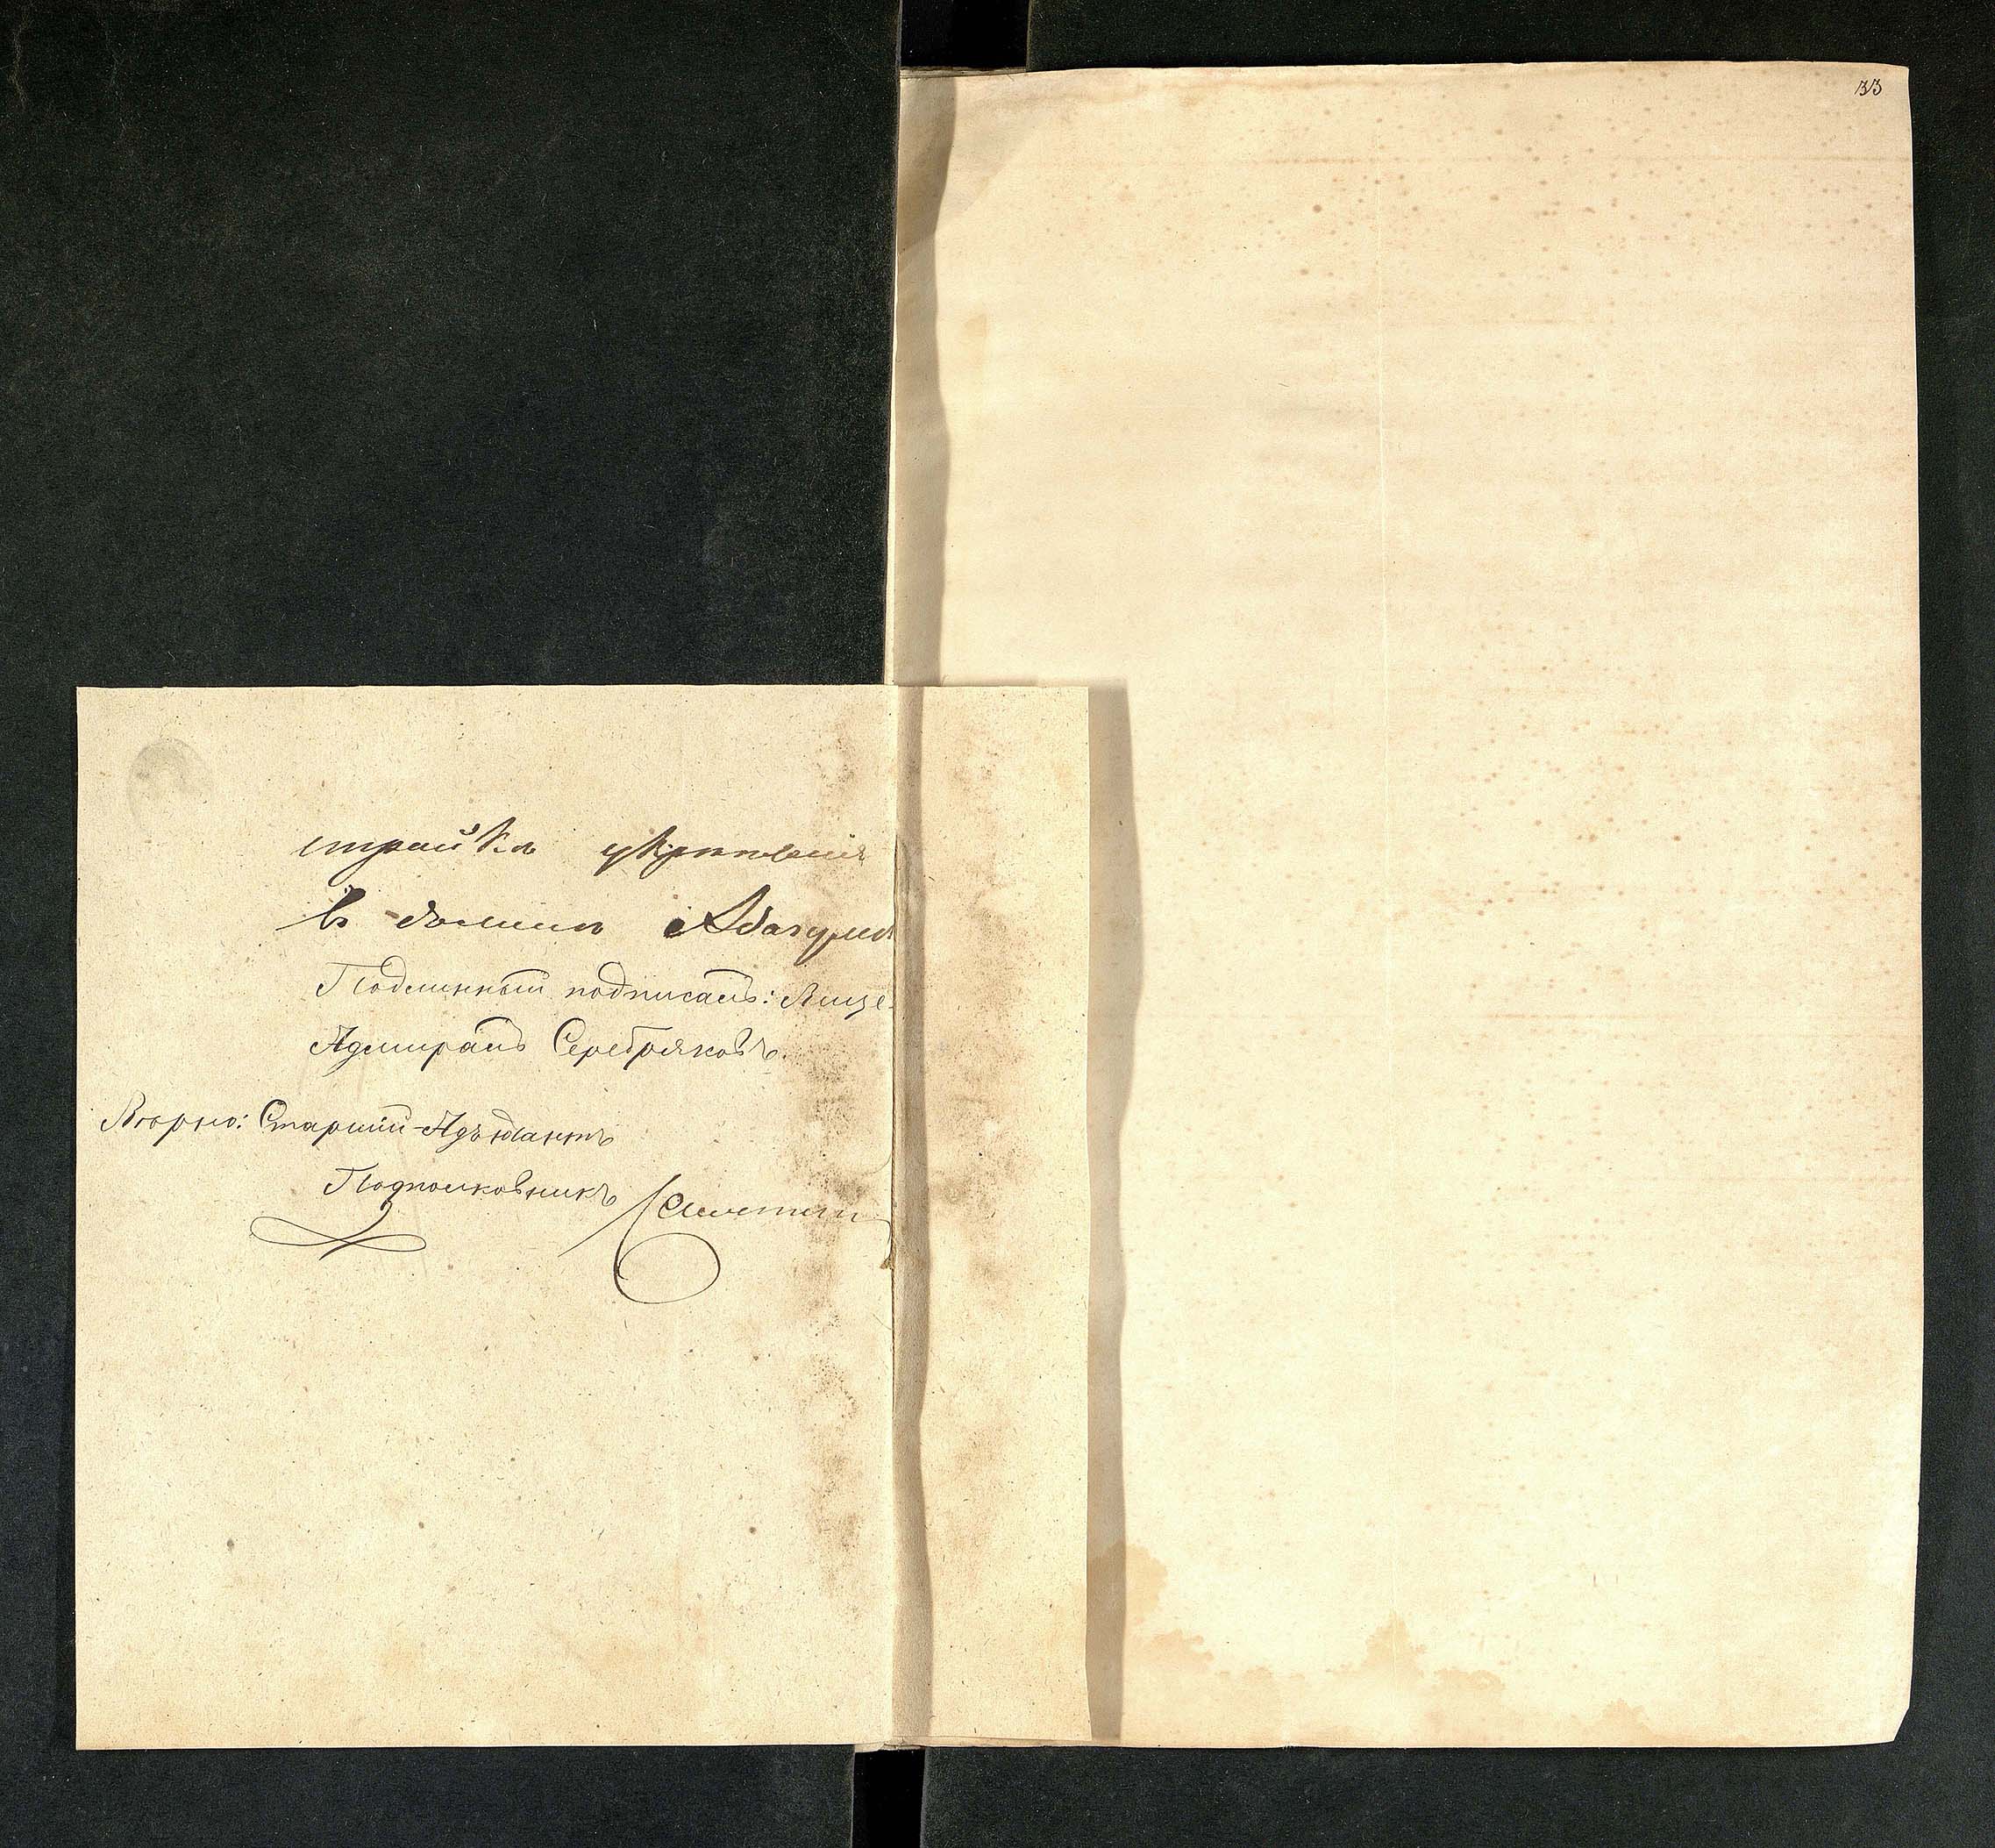 стройкѣ укрѣпленія
въ долинѣ
Подлинный подписалъ: Вице-
Адмиралъ Серебряковъ.
Вѣрно: Старшій Адъютантъ
Подполковникъ
33